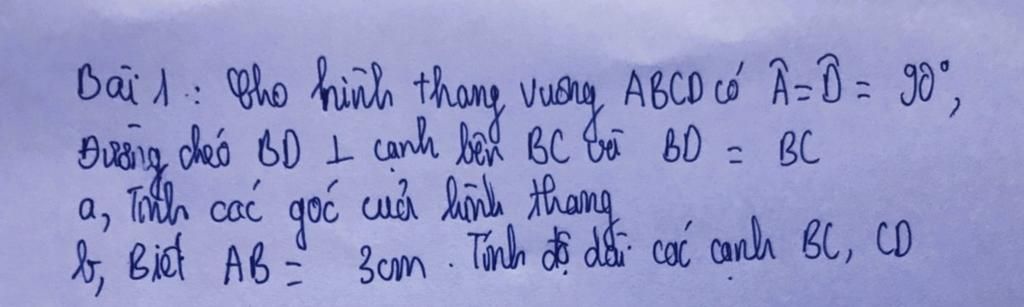 Bài 1 : Cho hình thang vuông ABCD có Â = D̂ = 90°,
Đường chéo BD ⊥ cạnh bên BC và BD = BC
a, Tính các góc của hình thang
b, Biết AB = 3cm. Tính độ dài các cạnh BC, CD